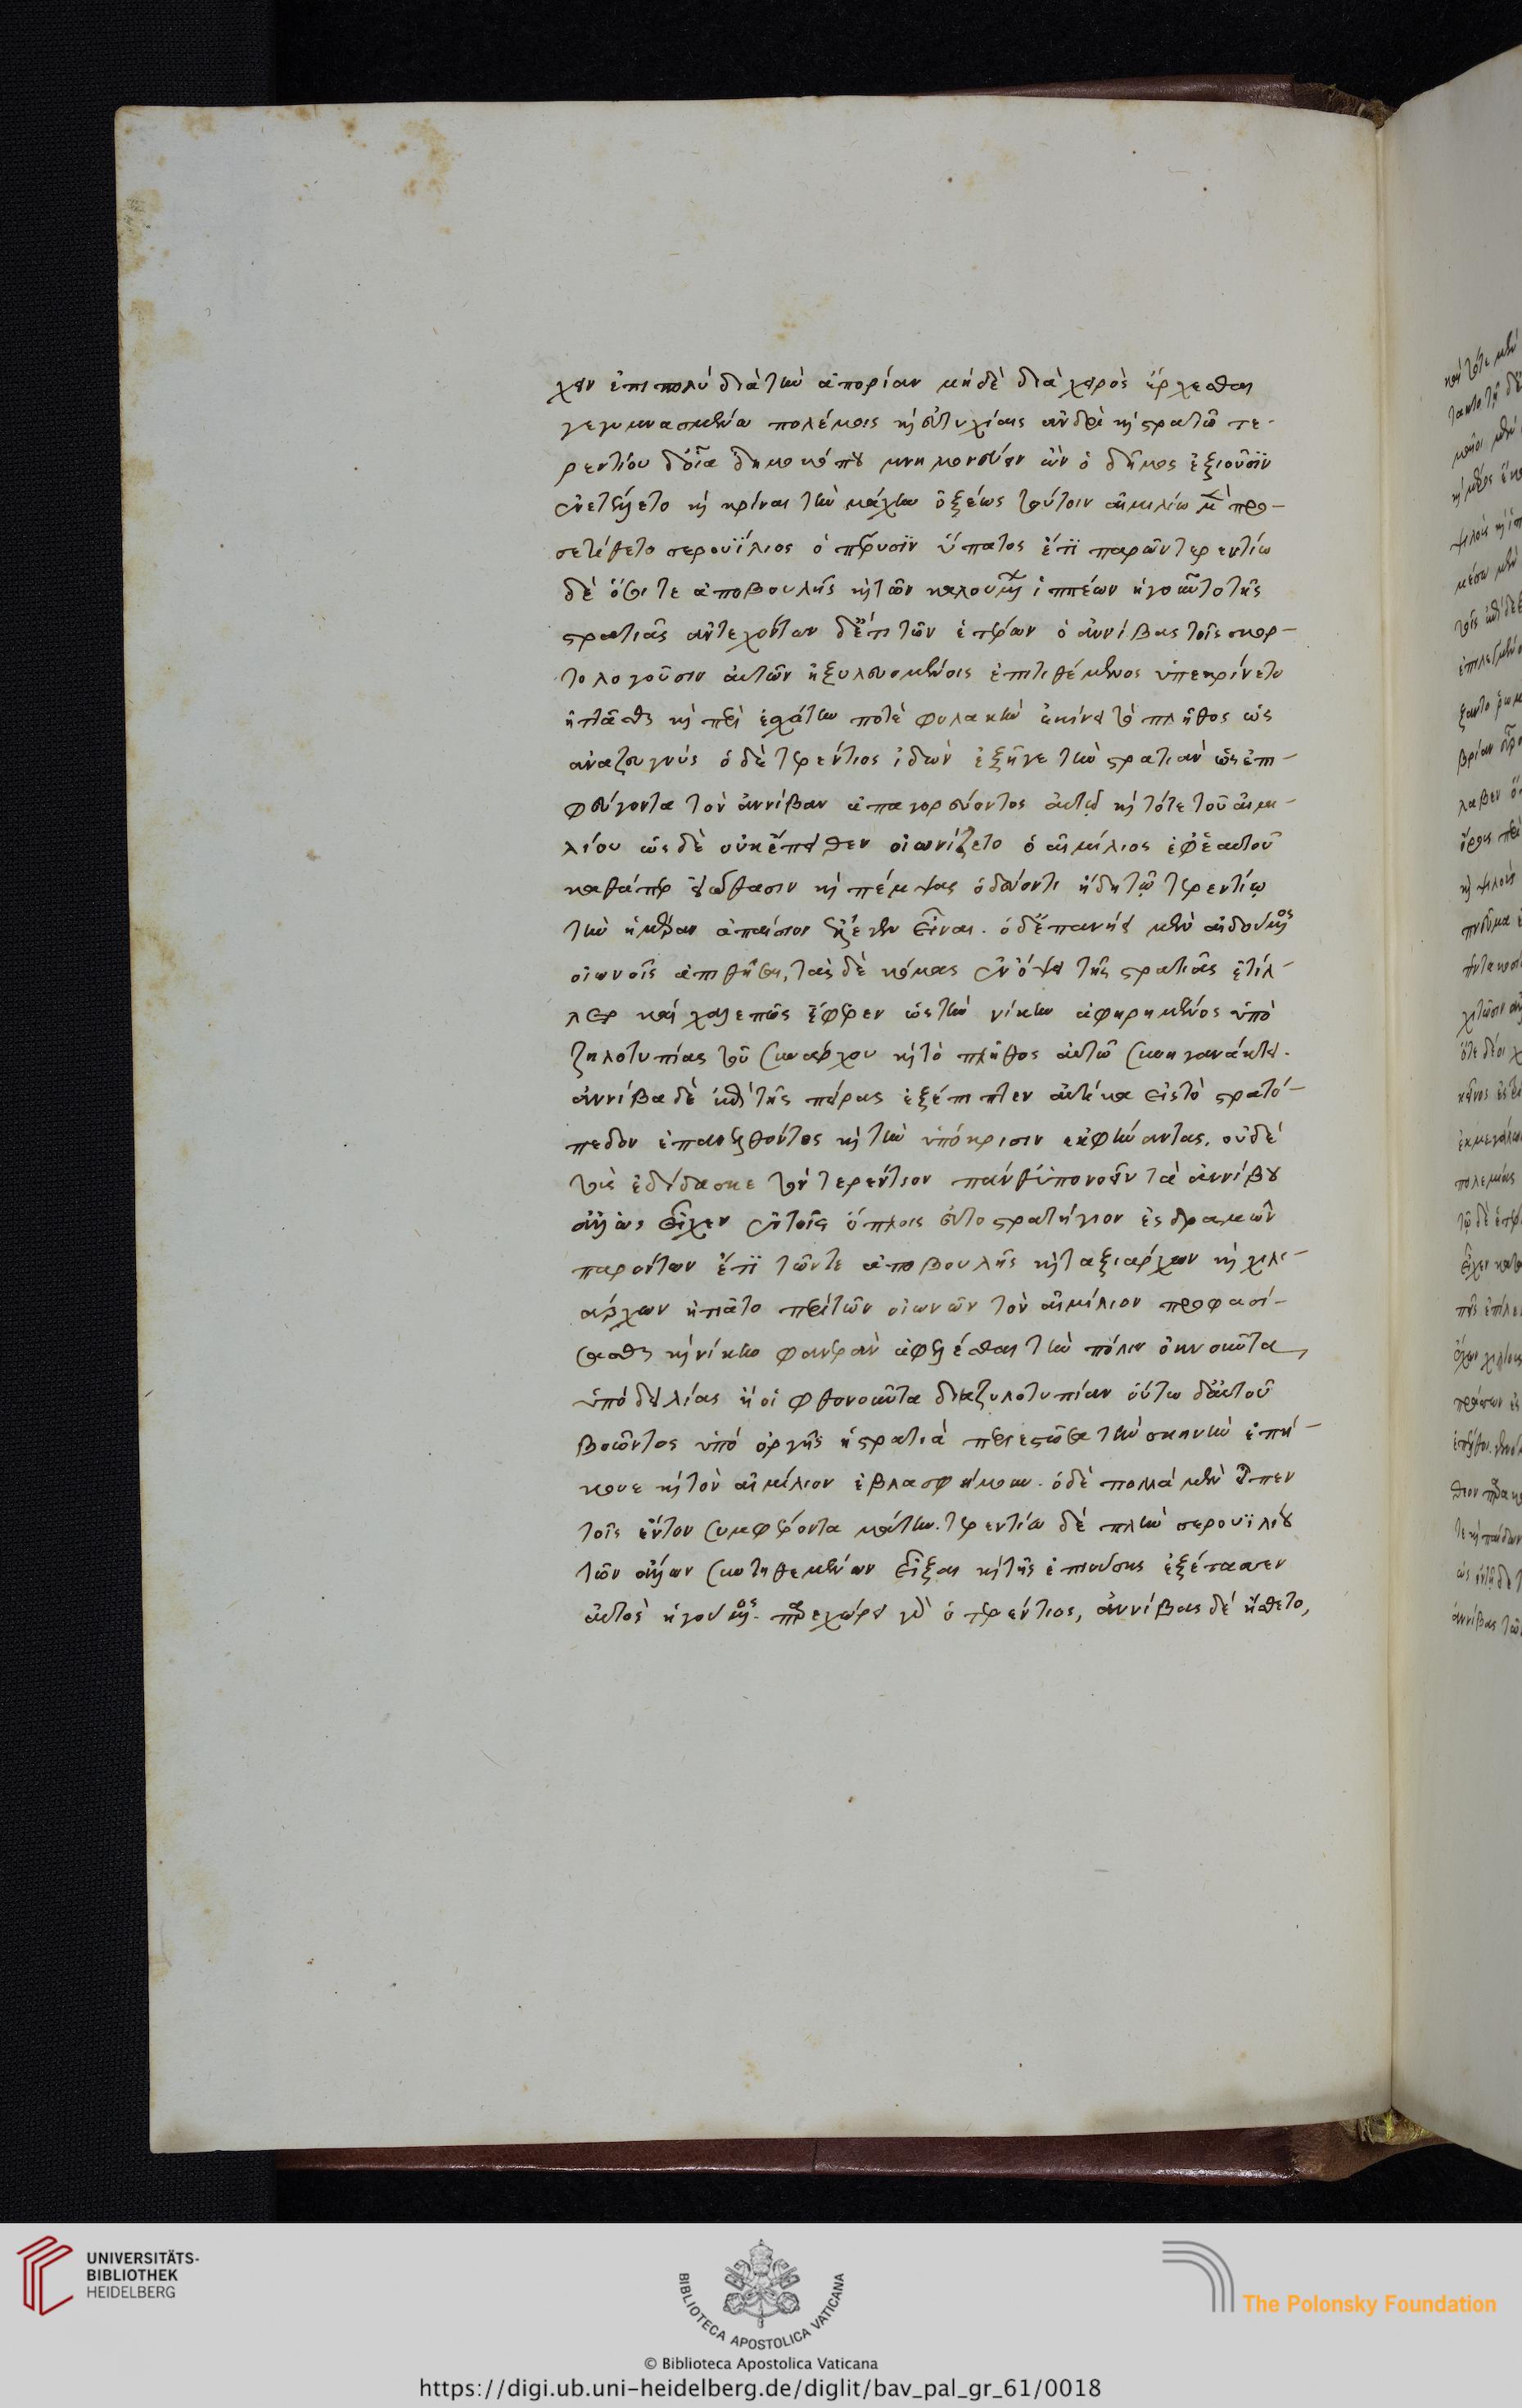 χειν ἐπι πολὺ διὰ τὴν ἀπορίαν μὴ δὲ διὰ χειρὸς ἔρχεσθαι
γεγυμνασμένω πολέμοις καὶ εὐτυχίαις ἀνδρὶ καὶ στρατῶ τε-
ρεντίου δ' οἷα δημοκόπου μνημονεύειν ὧν ὁ δῆμος ἐξιοῦσϊν
ἐνετέλλετο καὶ κρῖναι τὴν μάχην ὀξέως τούτοιν αἰμιλίω μὲν προ-
σετίθετο σερουΐλιος ὁ πέρυσϊν ὕπατος ἔτϊ παρῶν τερεντίω
δὲ ὅσοι τε ἀπὸ βουλῆς καὶ τῶν καλουμένων ἱππέων ἡγοῦντο τῆς
στρατιᾶς ἀντεχόντων δ' ἔτι τῶν ἑτέρων ὁ ἀννίβας τοῖς χορ-
τολογοῦσιν αὐτῶν ἢ ξυλευομένοις ἐπιτιθέμενος ὑπεκρίνετο
ἡττᾶσθαι καὶ περὶ ἐσχάτην ποτὲ φυλακὴν ἐκίνει τὸ πλῆθος ὡς
ἀναζευγνύς ὁ δὲ τερέντιος ἰδὼν ἐξῆγε τὴν στρατιὰν ὡς ἐπι-
φεύγοντα τὸν ἀννίβαν ἀπαγορεύοντος αὐτῷ καὶ τότε τοῦ αἰμι-
λίου ὡς δὲ οὐκ ἔπειθεν οἰωνίζετο ὁ αἰμίλιος ἐφ' ἑαυτοῦ
καθάπερ εἰώθασιν καὶ πέμψας ὁδεύοντι ἤδη τῷ τερεντίῳ
τὴν ἡμέραν ἀπαίσιον ἔλεγεν εἶναι. ὁ δ' ἐπανήει μὲν αἰδούμενος
οἰωνοῖς ἀπιθῆσαι, τὰς δὲ κόμας ἐν ὄψει τῆς στρατιᾶς ἐτίλ-
λετο καὶ χαλεπῶς ἔφερεν ὡς τὴν νίκην ἀφηρημένος ὑπὸ
ζηλοτυπίας τοῦ συνάρχου καὶ τὸ πλῆθος αὐτῶ συνηγανάκτει.
ἀννίβα δὲ ἐπεὶ τῆς πείρας ἐξέπιπτεν αὐτίκα εἰς τὸ στρατό-
πεδον ἐπανελθόντος καὶ τὴν ὑπόκρισιν ἐκφήναντος. οὐδὲ
τοῖς ἐδίδασκε τὸν τερέντιον πάνθ' ὑπονοεῖν τὰ ἀννίβου
ἀλλ' ὡς εἶχεν ἐν τοῖς ὅπλοις ἐς τὸ στρατήγιον ἐς δραμὼν
παρόντων ἔτϊ τῶν τε ἀπὸ βουλῆς καὶ ταξιαρχων καὶ χιλι-
άρχων ἠτιᾶτο περὶ τῶν οἰωνῶν τὸν αἰμίλιον προφασί-
σασθαι καὶ νίκην φανερὰν ἀφελέσθαι τὴν πόλιν ὀκνοῦντα
ὑπὸ δειλίας ἢ οἱ φθονοῦντα διὰ ζυλοτυπίαν οὕτω δ' αὐτοῦ
βοῶντος ὑπὸ ὀργῆς ἡ στρατιὰ περιεστῶσα τὴν σκηνὴν ἐπή-
κουε καὶ τὸν αἰμίλιον ἐβλασφήμουν. ὁ δὲ πολλὰ μὲν εἶπεν
τοῖς ἔντον συμφέροντα μάτην. τερεντίω δὲ πλὴν σερουϊλίου
τῶν ἄλλων συντιθεμένων εἶξαι καὶ τῆς ἐπιούσης ἐξέτασσεν
αὐτὸς ἡγούμενος. παρεχώρει γὰρ ὁ τερέντιος, ἀννίβας δὲ ἤσθετο,
UNIVERSITÄTS-
BIBLIOTHEK
HEIDELBERG
BIBLIOTECA APOSTOLICA VATICANA
© Biblioteca Apostolica Vaticana
The Polonsky Foundation
https://digi.ub.uni-heidelberg.de/diglit/bav_pal_gr_61/0018